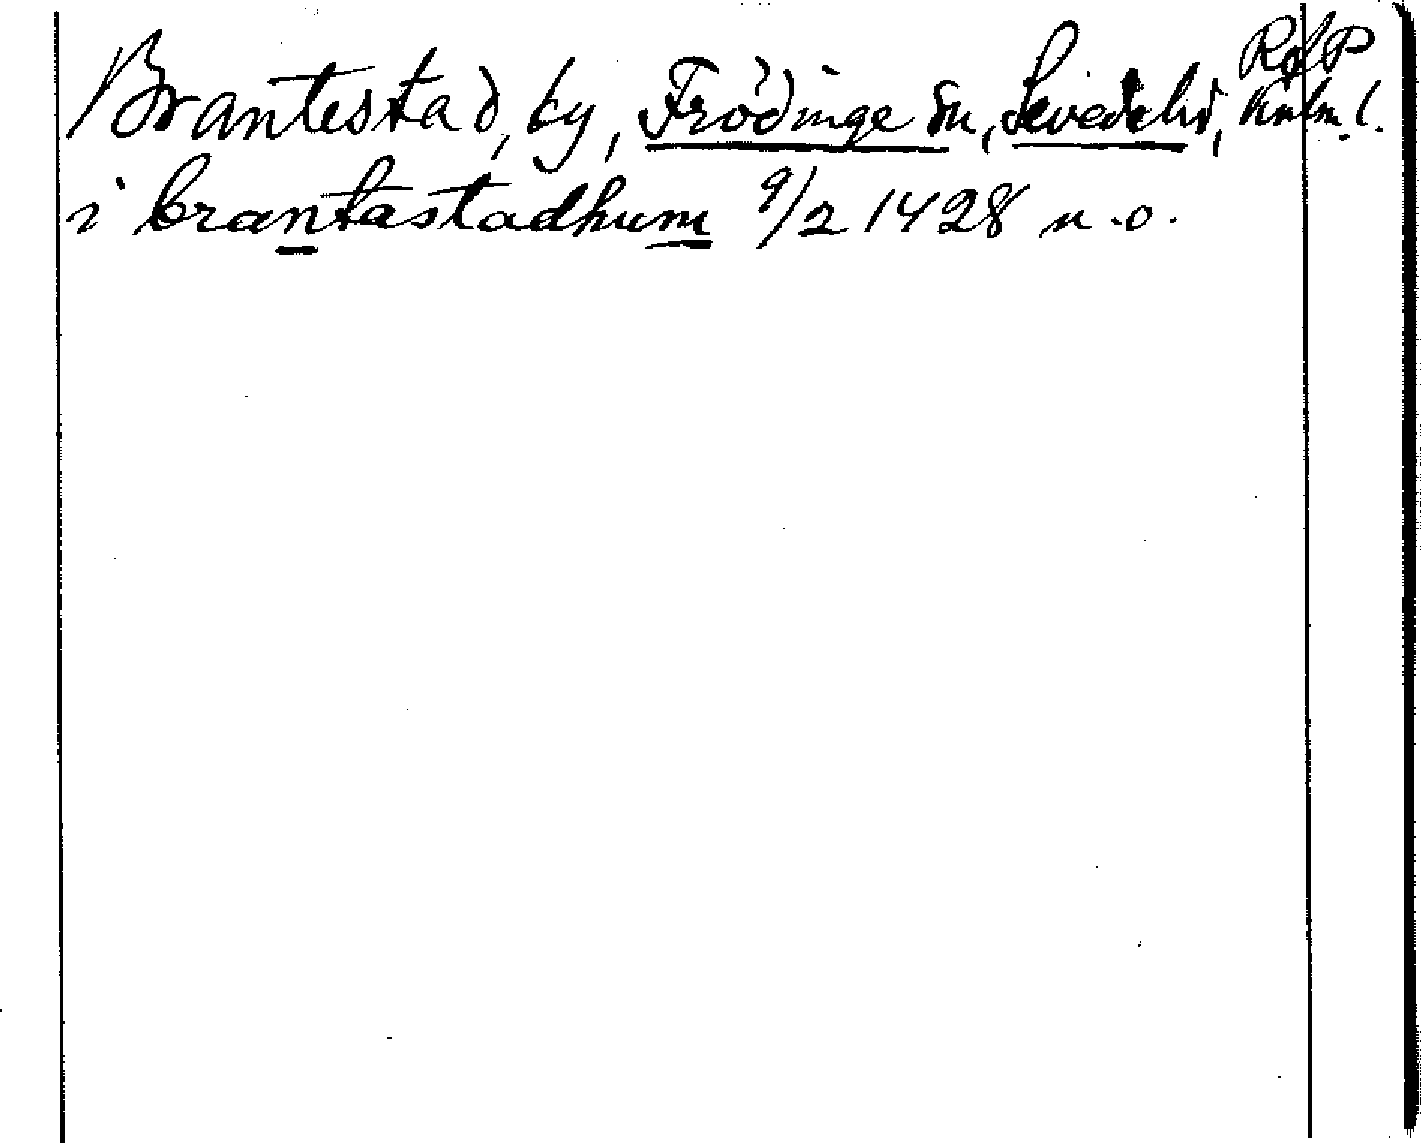 RAP
Brantestad, by, Frödinge sn, Sevede hd, Kalm. l.
i brantastadhum 9/2 1428 n.o.